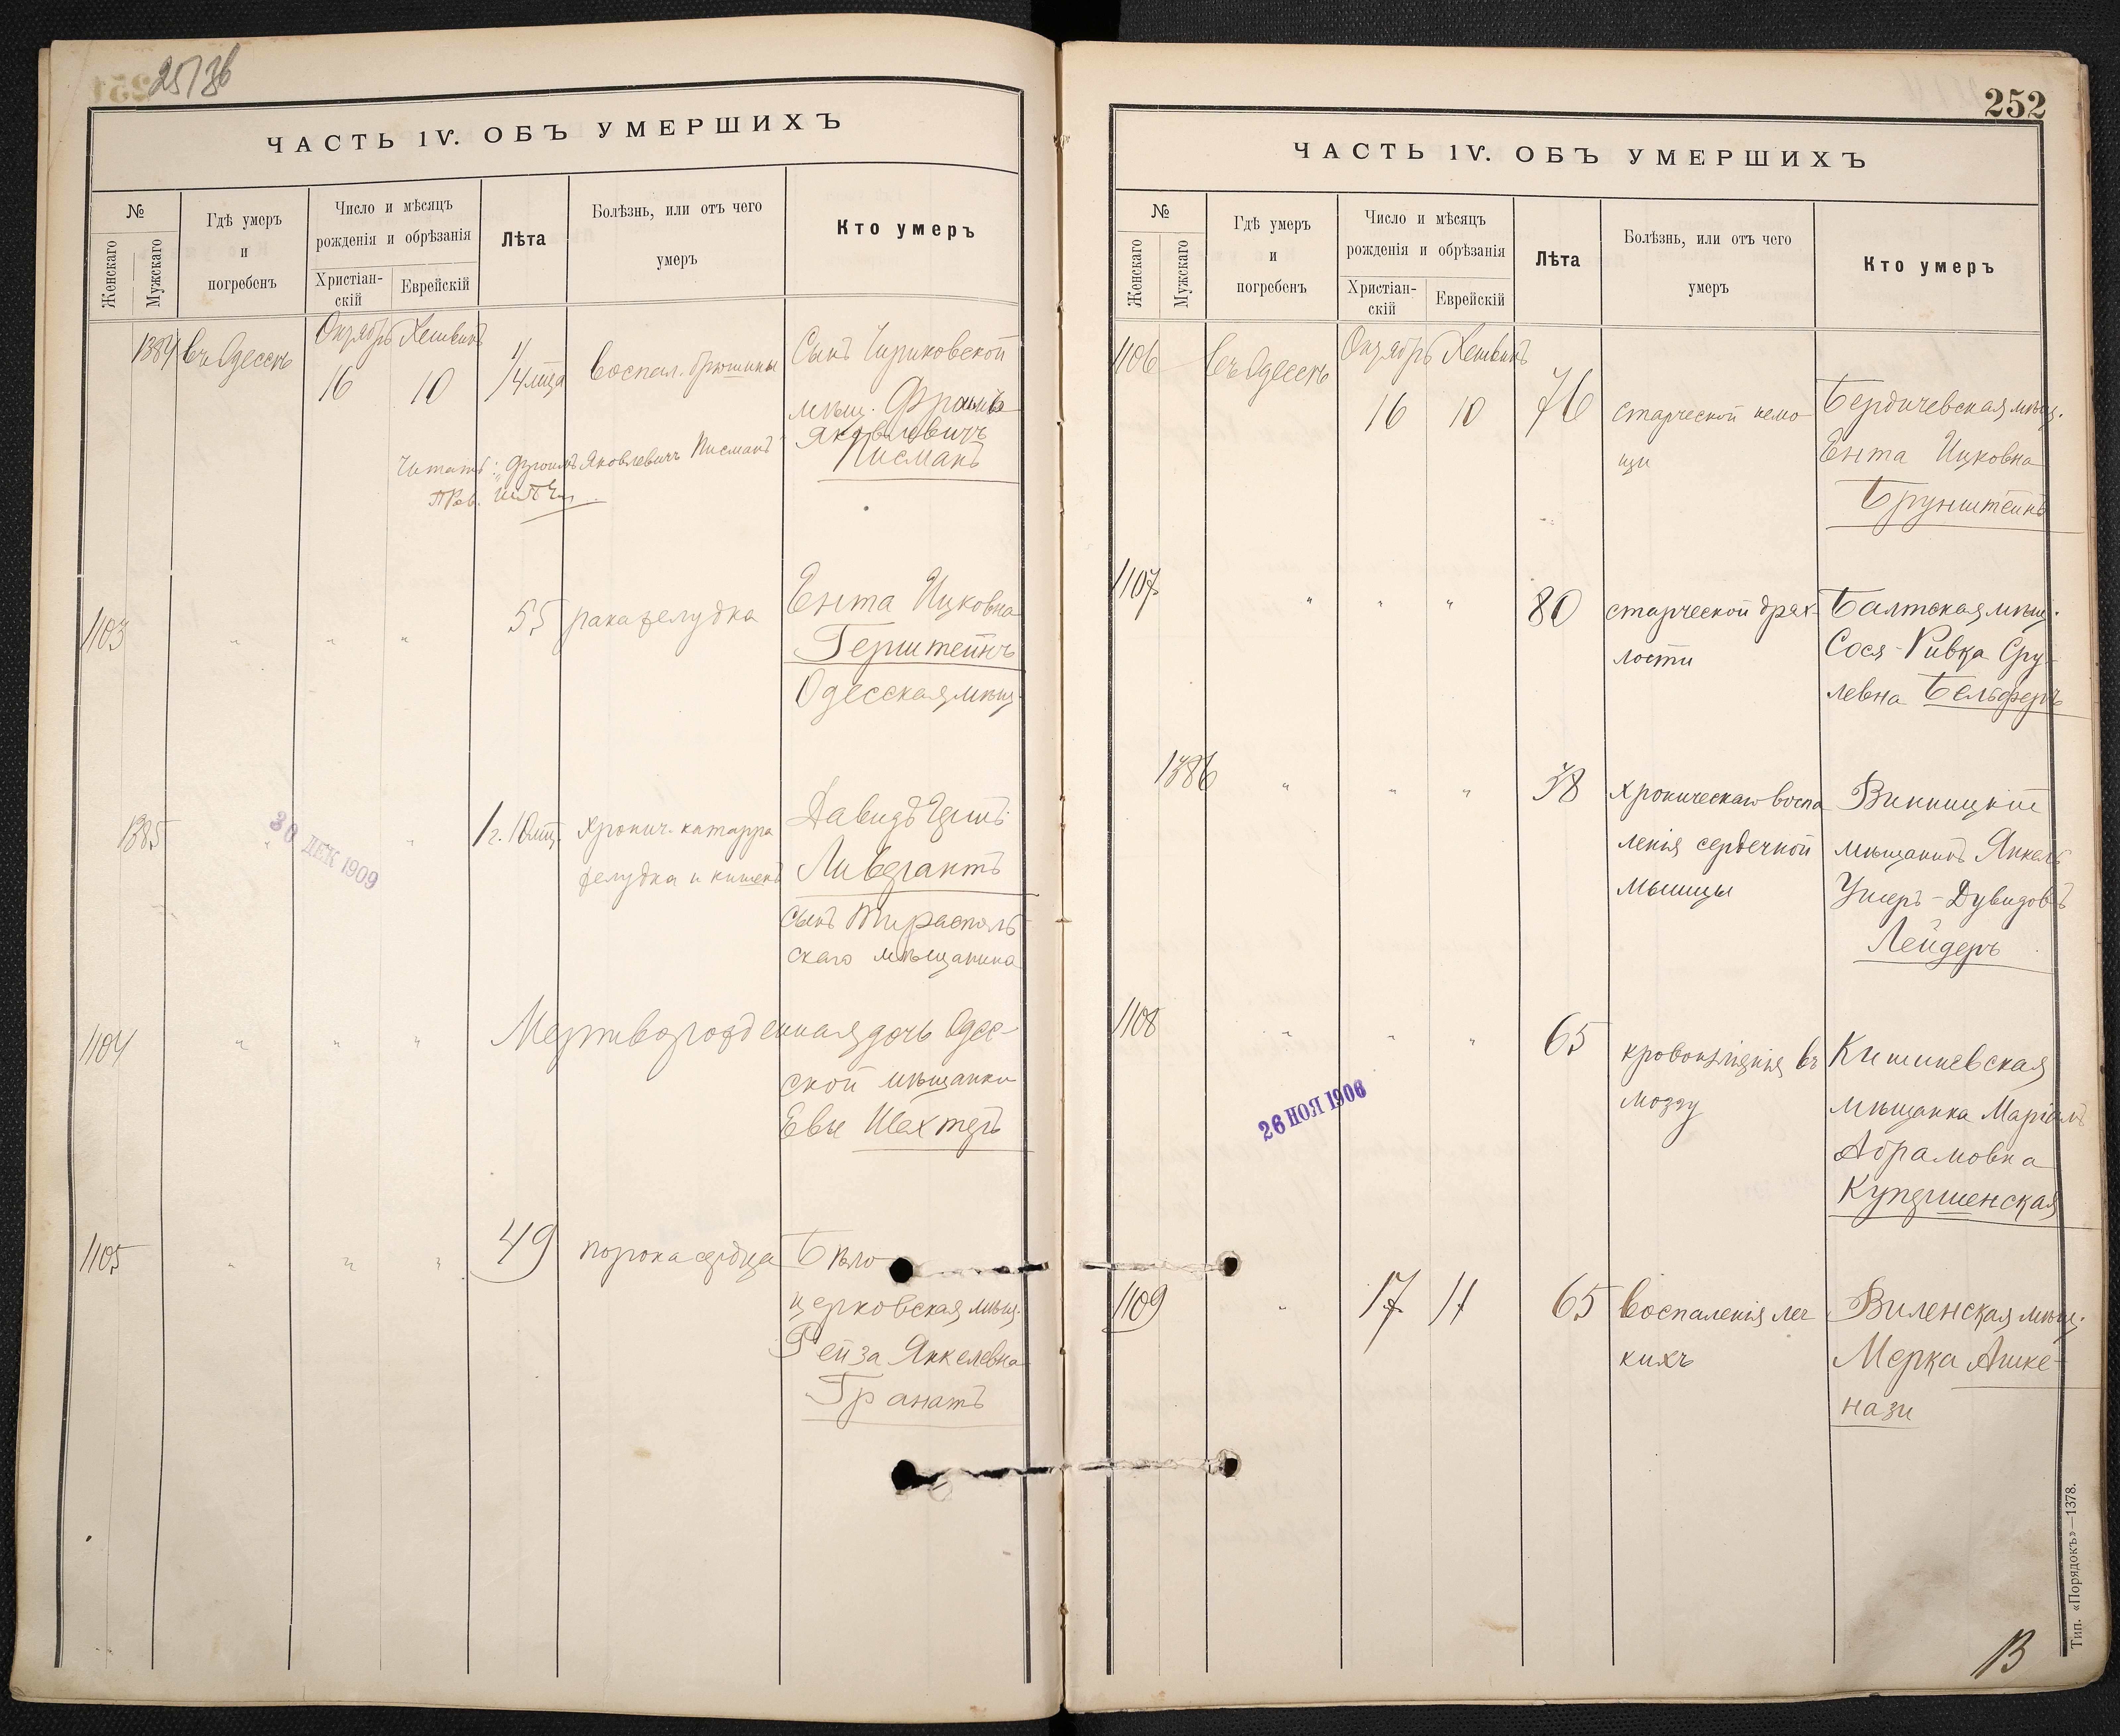 25736
ЧАСТЬ IV. ОБЪ УМЕРШИХЪ
№
Женскаго
Мужскаго
Гдѣ умеръ
и
погребенъ
Число и мѣсяцъ
рожденія и обрѣзанія
Христіан-
скій
Еврейскій
Лѣта
Болѣзнь, или отъ чего
умеръ
Кто умеръ
1384 въ Одессѣ
Октябрь Хешвинъ
16 10
воспал. брюшины
Сынъ Чириковской
мѣщ.
Яковлевичъ
Писманъ
Читать: Фроимъ Яковлевичъ Писманъ
1103 " " " 55 рака желудка
Ента Ицковна
Герштейнъ
Одесская мѣщ.
1385 " " 1 г. 10 мц. хронич. катарра
желудка и кишекъ
Давидъ
Ливергантъ
сынъ Тирасполь
скаго мѣщанина
30 ДЕК 1909
1104 " " " Мертворожденная дочь Одес-
ской мѣщанки
Евы Шехтеръ
1105 " " " 49 порока сердца
Бѣло
церковская мѣщ.
Рейза Янкелевна
Гранатъ
252
ЧАСТЬ IV. ОБЪ УМЕРШИХЪ
№
Женскаго
Мужскаго
Гдѣ умеръ
и
погребенъ
Число и мѣсяцъ
рожденія и обрѣзанія
Христіан-
скій
Еврейскій
Лѣта
Болѣзнь, или отъ чего
умеръ
Кто умеръ
1106 въ Одессѣ
Октябрь Хешвинъ
16 10 76 старческой немо
щи
Бердичевская мѣщ.
Ента Ицковна
Брунштейнъ
1107 " " " 80 старческой дрях-
лости
Балтская мѣщ.
Сося-Ривка Сру-
левна Бельферъ
1386 " " " 38 хроническаго воспа
ленія сердечной
мышцы
Винницкій
мѣщанинъ Янкель
Ушеръ-Дувидовъ
Лейдеръ
1108 " " " 65 кровоизліянія въ
мозгу
Кишиневская
мѣщанка Маріамъ
Абрамовна
26 НОЯ 1906
1109 " 17 11 65 воспаленія лег
кихъ
Виленская мѣщ.
Мерка Ашке-
нази
В
Тип. «Порядокъ»—1378.